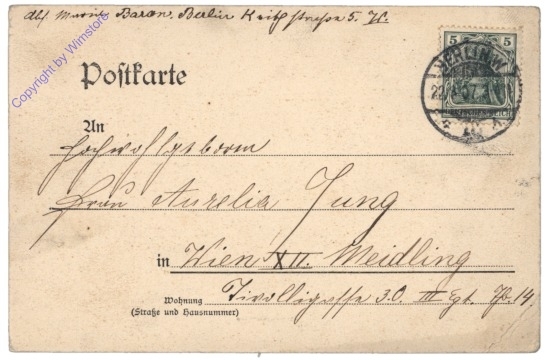 Abs. Moritz Baron, Berlin Keithstraße 5. II.
Copyright by Wimstore
5 5
BERLIN W
Postkarte
An
Hochwohlgeboren
Frau Aurelia Jung
in Wien XII. Meidling
Wohnung
(Straße und Hausnummer)
Tivoligasse 30. III Egt. Th. 14.